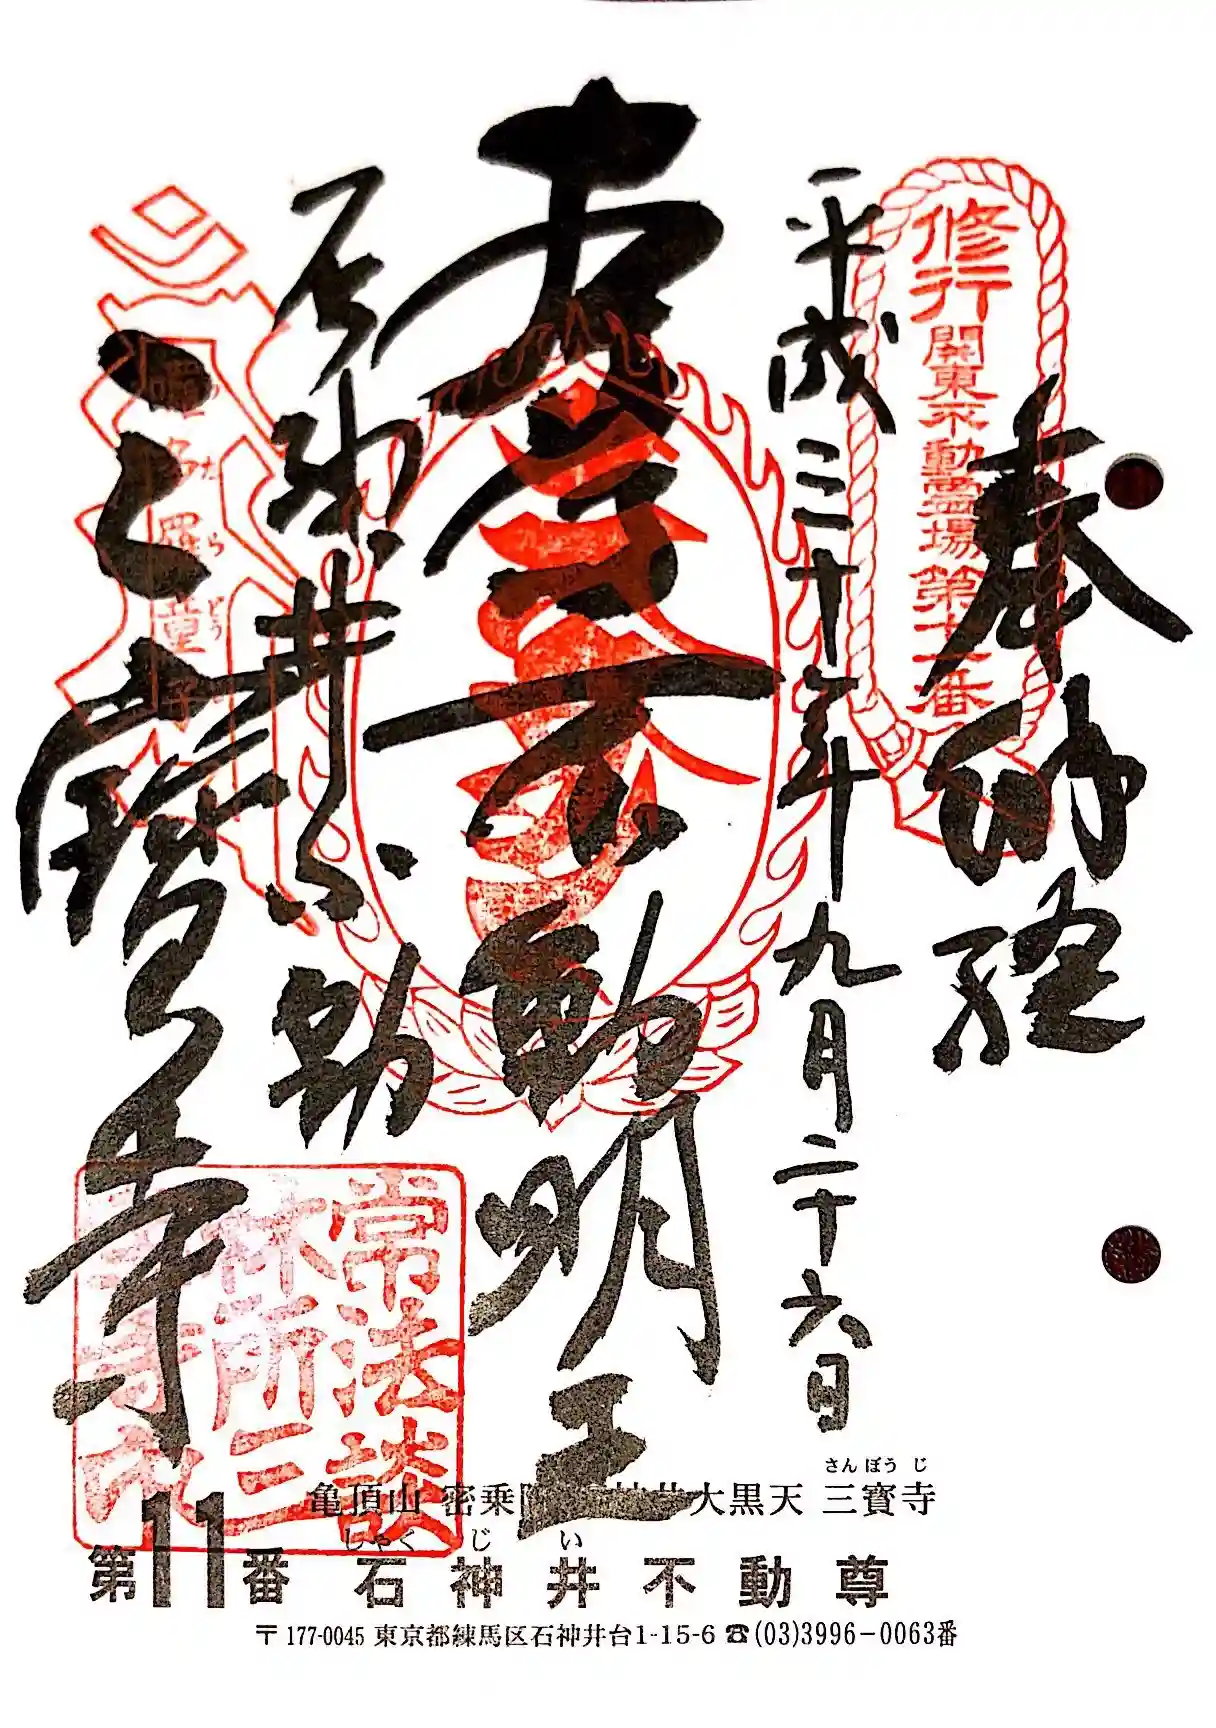 奉納経
修行関東不動霊場第十一番
平成三十年九月二十六日
本尊不動明王
石神井不動
三寶寺
多羅童子
たらどう
常法談
林所三
寺印
さんぽうじ
亀頂山 密乗院 大黒天 三寳寺
しゃくじい
第11番 石神井不動尊
〒177-0045 東京都練馬区石神井台1-15-6 ☎(03)3996-0063番